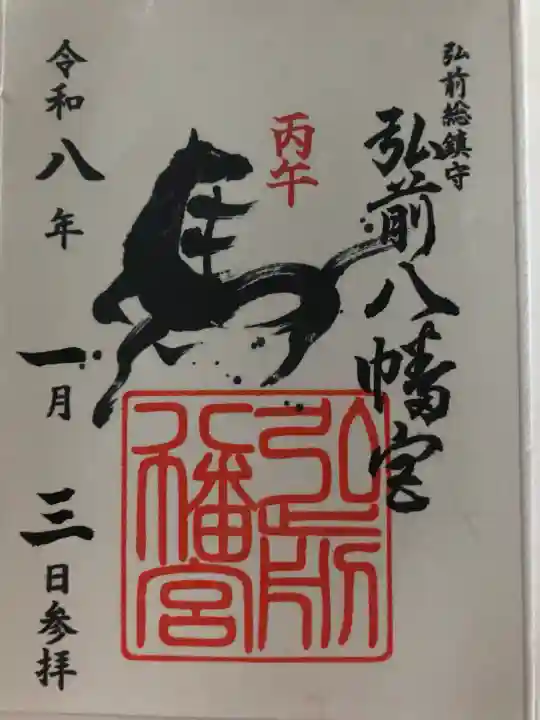 弘前総鎮守
弘前八幡宮
丙午
馬
弘前
八幡宮
令和八年
一月
三日参拝